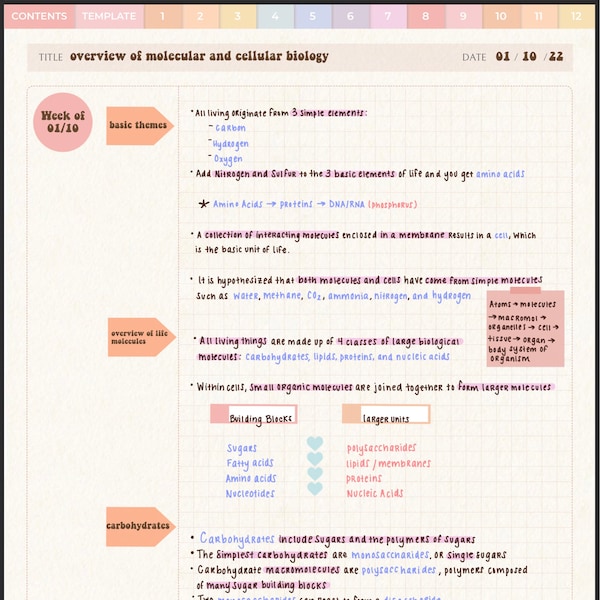 CONTENTS TEMPLATE 1 2 3 4 5 6 7 8 9 10 11 12
TITLE overview of molecular and cellular biology DATE 01 / 10 / 22
Week of
01/10
basic themes
* All living originate from 3 simple elements:
- Carbon
- Hydrogen
- Oxygen
* Add Nitrogen and Sulfur to the 3 basic elements of life and you get amino acids
★ Amino Acids → proteins → DNA/RNA (phosphorus)
* A collection of interacting molecules enclosed in a membrane results in a cell, which
is the basic unit of life.
* It is hypothesized that both molecules and cells have come from simple molecules
such as water, methane, CO2, ammonia, nitrogen, and hydrogen.
Atoms → molecules
→ macromol →
organelles → cell →
tissue → organ →
body system of
organism
overview of life
molecules
* All living things are made up of 4 classes of large biological
molecules: Carbohydrates, lipids, proteins, and nucleic acids
* Within cells, small organic molecules are joined together to form larger molecules
Building Blocks larger units
Sugars polysaccharides
Fatty acids lipids/membranes
Amino acids proteins
Nucleotides Nucleic Acids
carbohydrates
• Carbohydrates include sugars and the polymers of sugars
• The simplest carbohydrates are monosaccharides, or single sugars
• Carbohydrate macromolecules are polysaccharides, polymers composed
of many sugar building blocks
• Two monosaccharides can react to form a disaccharide